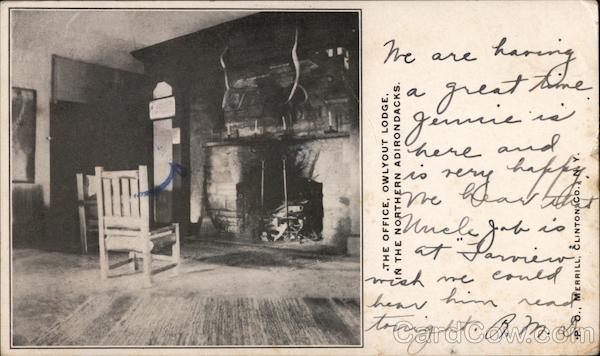 THE OFFICE, OWLYOUT LODGE,
IN THE NORTHERN ADIRONDACKS.
P. O., MERRILL, CLINTON CO., N. Y.
We are having
a great time
Jennie is
here and
is very happy.
We hear that
Uncle Job is
at "Farview
wish we could
hear him read
tonight.
CardCow.com